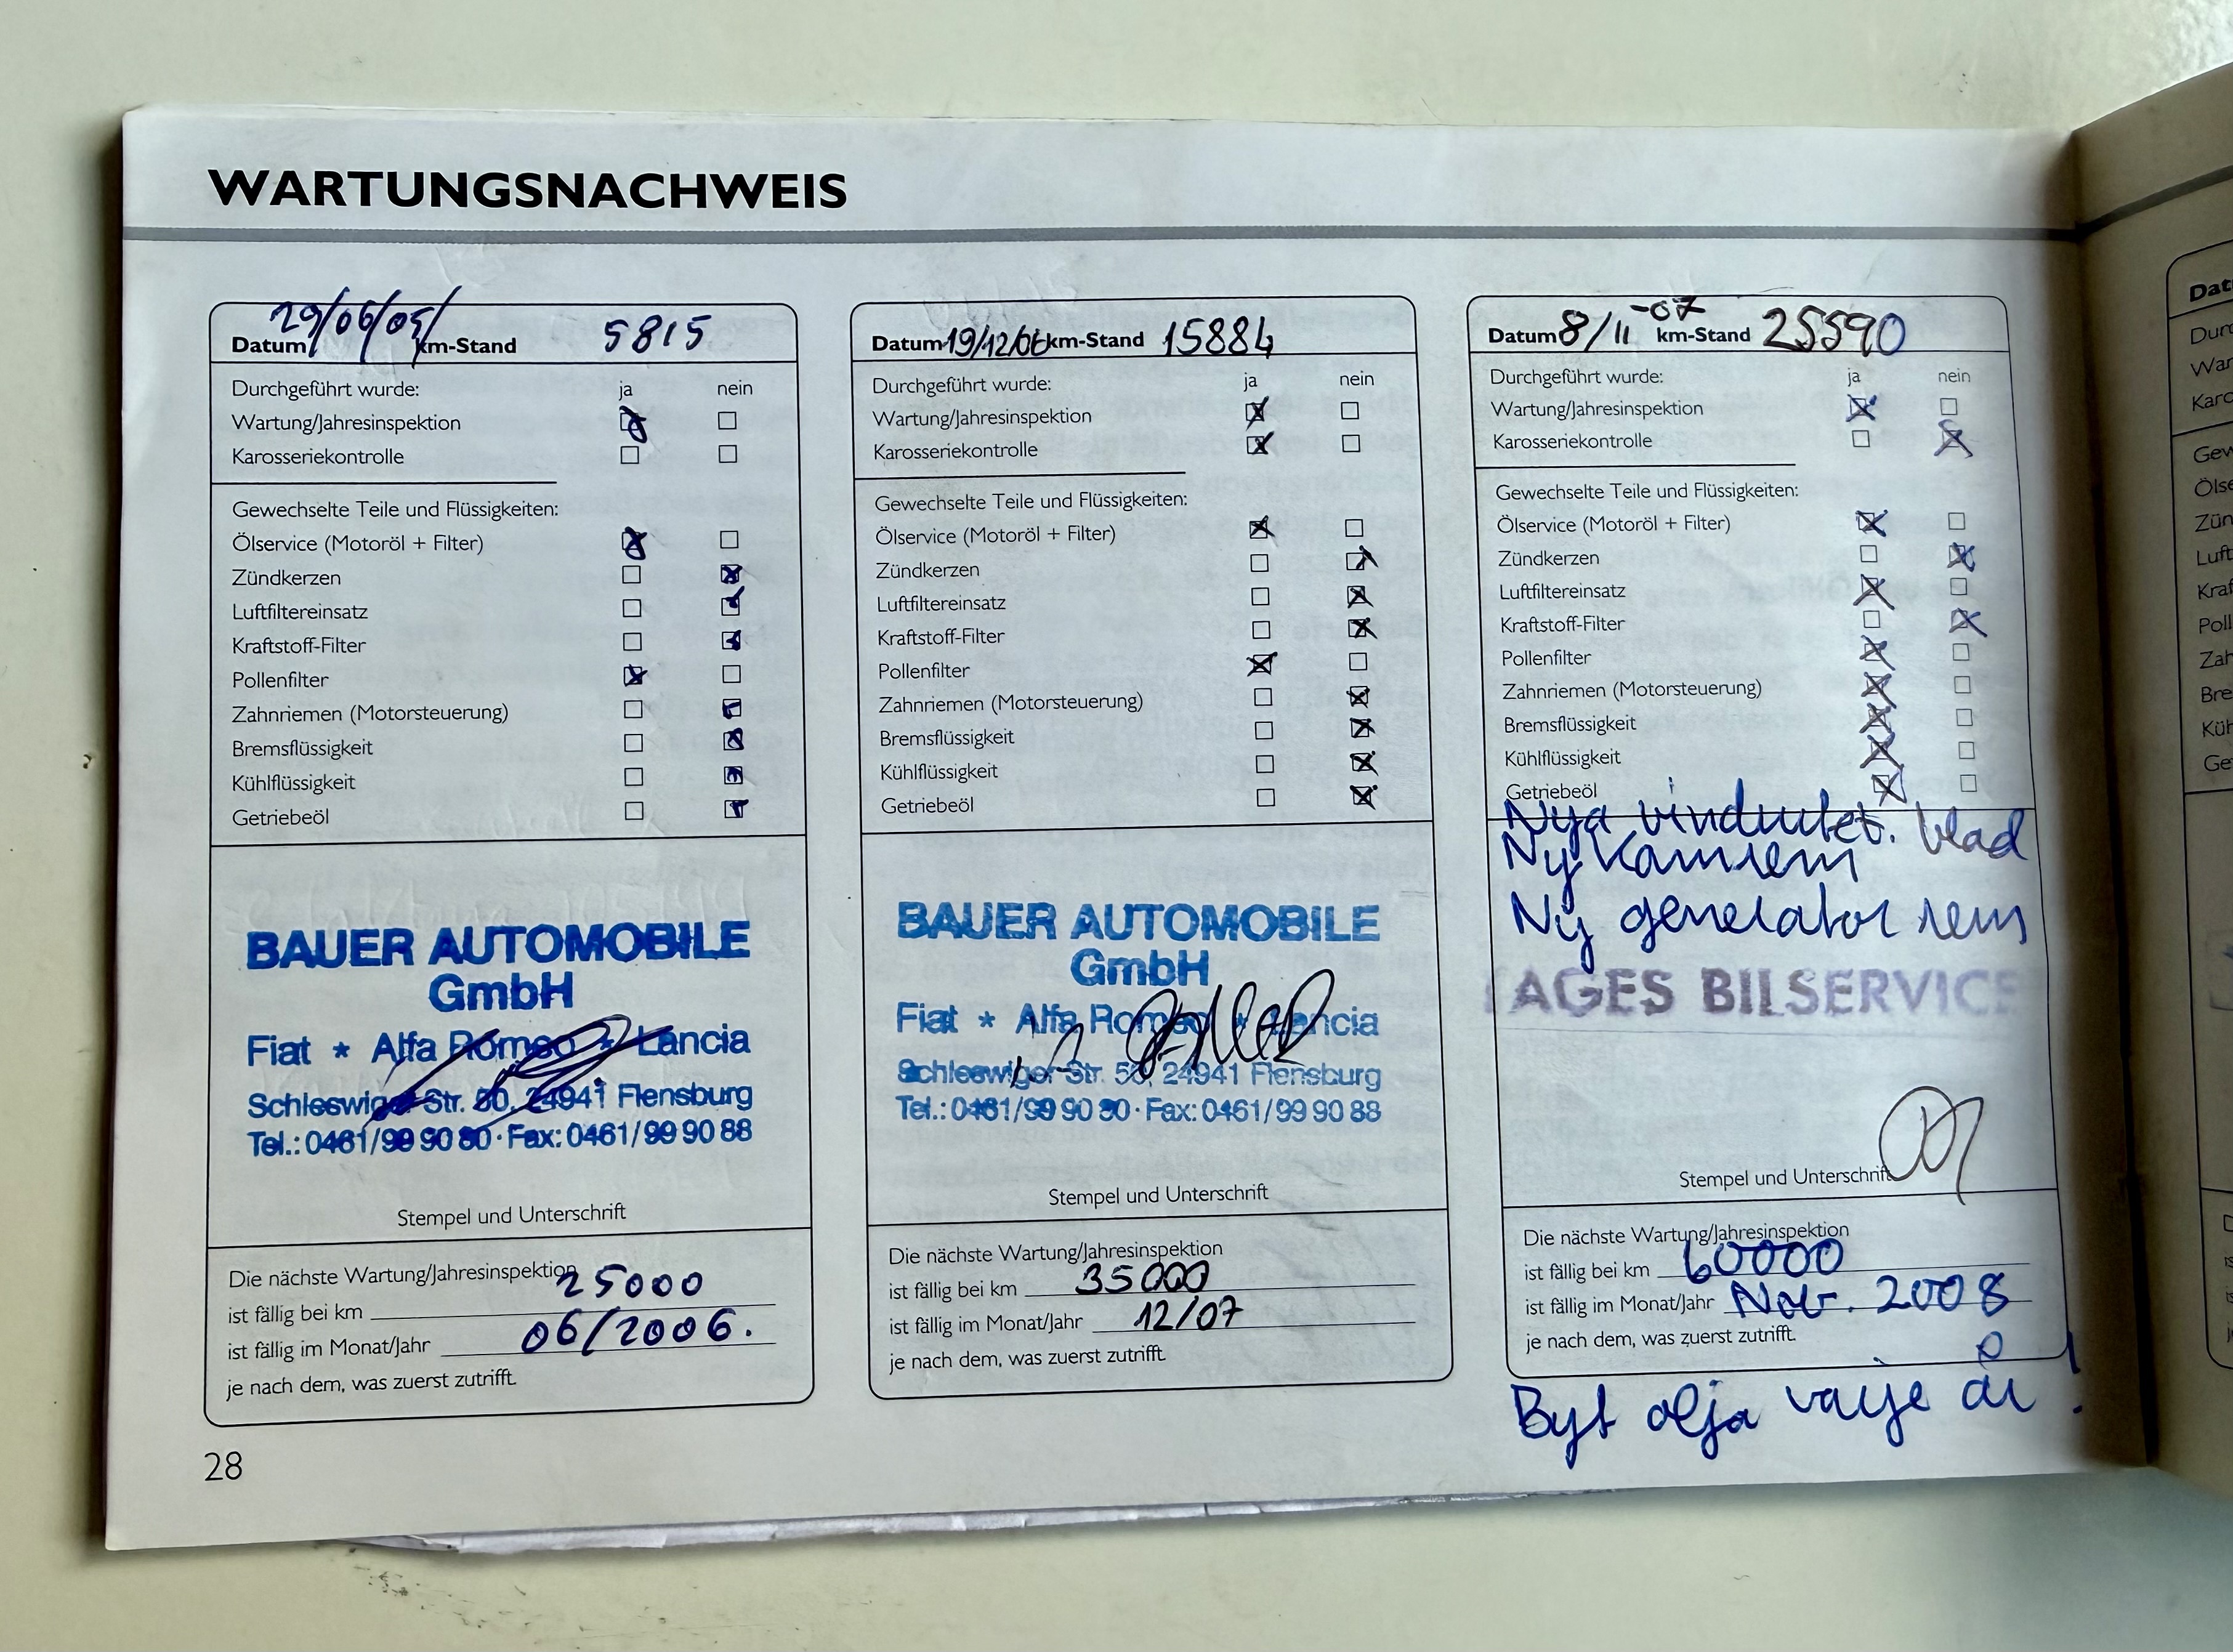 WARTUNGSNACHWEIS
29/06/05/
Datum km-Stand 5815
Durchgeführt wurde: ja nein
Wartung/Jahresinspektion
Karosseriekontrolle
Gewechselte Teile und Flüssigkeiten:
Ölservice (Motoröl + Filter)
Zündkerzen
Luftfiltereinsatz
Kraftstoff-Filter
Pollenfilter
Zahnriemen (Motorsteuerung)
Bremsflüssigkeit
Kühlflüssigkeit
Getriebeöl
BAUER AUTOMOBILE
GmbH
Fiat * Alfa Romeo * Lancia
Schleswiger Str. 50, 24941 Flensburg
Tel.: 0461/99 90 80 · Fax: 0461/99 90 88
Stempel und Unterschrift
Die nächste Wartung/Jahresinspektion
ist fällig bei km 25000
ist fällig im Monat/Jahr 06/2006.
je nach dem, was zuerst zutrifft.
28
Datum 19/12/06 km-Stand 15884
Durchgeführt wurde: ja nein
Wartung/Jahresinspektion
Karosseriekontrolle
Gewechselte Teile und Flüssigkeiten:
Ölservice (Motoröl + Filter)
Zündkerzen
Luftfiltereinsatz
Kraftstoff-Filter
Pollenfilter
Zahnriemen (Motorsteuerung)
Bremsflüssigkeit
Kühlflüssigkeit
Getriebeöl
BAUER AUTOMOBILE
GmbH
Fiat * Alfa Romeo * Lancia
Schleswiger Str. 50, 24941 Flensburg
Tel.: 0461/99 90 80 · Fax: 0461/99 90 88
Stempel und Unterschrift
Die nächste Wartung/Jahresinspektion
ist fällig bei km 35000
ist fällig im Monat/Jahr 12/07
je nach dem, was zuerst zutrifft.
Datum 8/11 -07 km-Stand 25590
Durchgeführt wurde: ja nein
Wartung/Jahresinspektion
Karosseriekontrolle
Gewechselte Teile und Flüssigkeiten:
Ölservice (Motoröl + Filter)
Zündkerzen
Luftfiltereinsatz
Kraftstoff-Filter
Pollenfilter
Zahnriemen (Motorsteuerung)
Bremsflüssigkeit
Kühlflüssigkeit
Getriebeöl
Nya blad
Ny Kamrem
Ny generator rem
TAGES BILSERVICE
Stempel und Unterschrift
Die nächste Wartung/Jahresinspektion
ist fällig bei km 60000
ist fällig im Monat/Jahr Nov. 2008
je nach dem, was zuerst zutrifft.
Byt olja varje år!